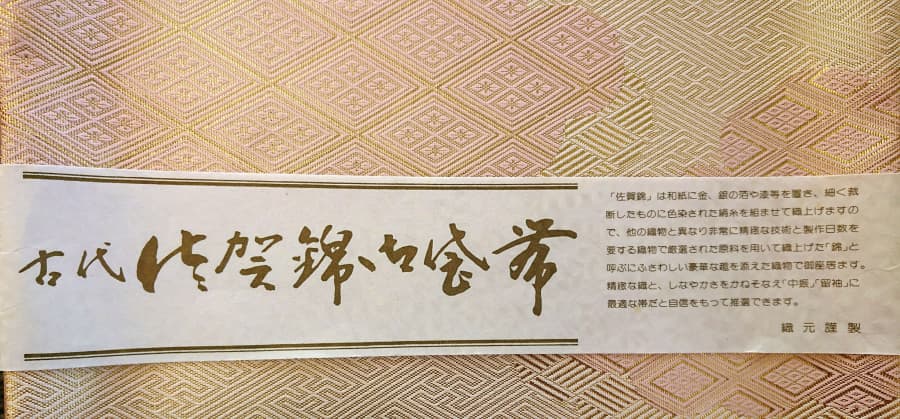 古代佐賀錦御袋帯
「佐賀錦」は和紙に金、銀の箔や漆等を置き、細く裁
断したものに色染された絹糸を組ませて織上げますの
で、他の織物と異なり非常に精緻な技術と製作日数を
要する織物で厳選された原料を用いて織上げた「錦」と
呼ぶにふさわしい豪華な趣を添えた織物で御座居ます。
精緻な織と、しなやかさをかねそなえ「中振」「留袖」に
最適な帯だと自信をもって推選できます。
織元謹製